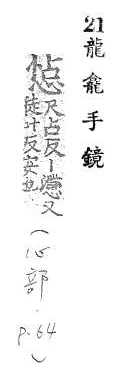 21 龍龕手鏡
惉 尺占反丨懘又
徒叶反安也
（心部. p.64）